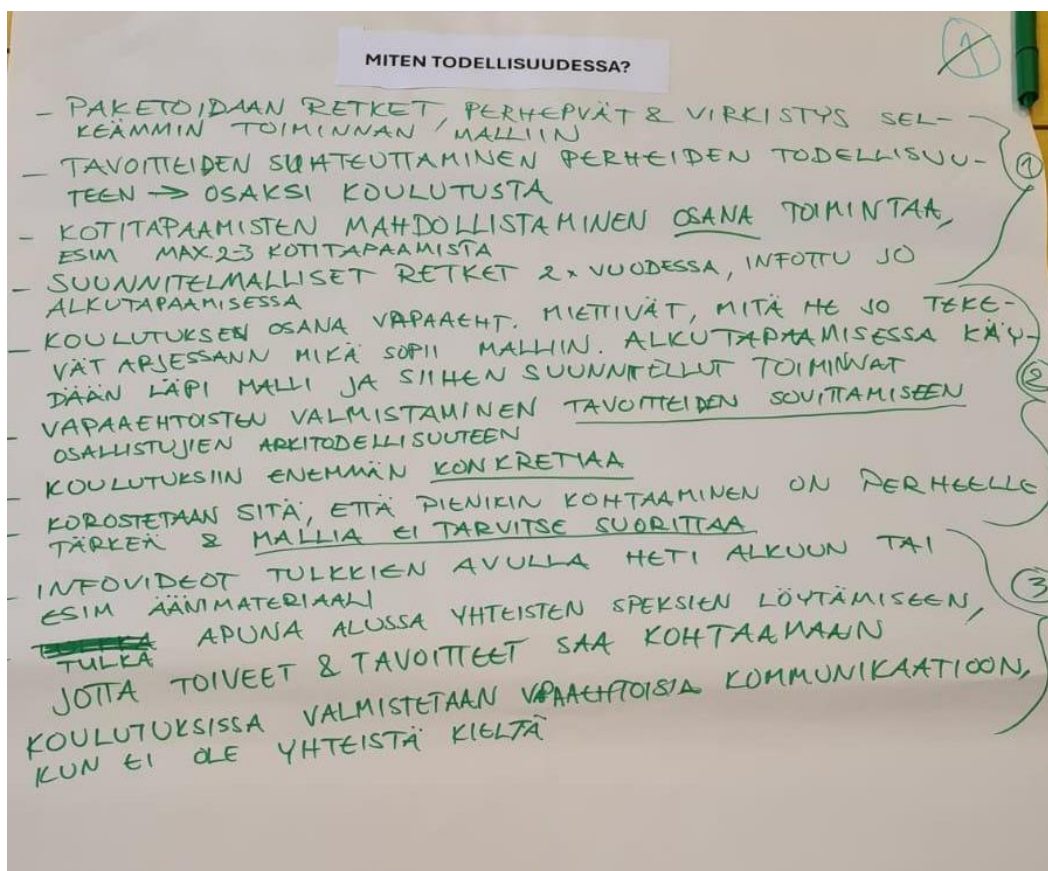 MITEN TODELLISUUDESSA?
1
- PAKETOIDAAN RETKET, PERHEPVÄT & VIRKISTYS SEL-
KEÄMMIN TOIMINNAN / MALLIIN
- TAVOITTEIDEN SUHTEUTTAMINEN PERHEIDEN TODELLISUU-
TEEN → OSAKSI KOULUTUSTA
1
- KOTITAPAAMISTEN MAHDOLLISTAMINEN OSANA TOIMINTAA,
ESIM MAX. 2-3 KOTITAPAAMISTA
- SUUNNITELMALLISET RETKET 2x VUODESSA, INFOTTU JO
ALKUTAPAAMISESSA
- KOULUTUKSEN OSANA VAPAAEHT. MIETTIVÄT, MITÄ HE JO TEKE-
VÄT ARJESSANN MIKÄ SOPII MALLIIN. ALKUTAPAAMISESSA KÄY-
DÄÄN LÄPI MALLI JA SIIHEN SUUNNITELLUT TOIMINNAT
2
- VAPAAEHTOISTEN VALMISTAMINEN TAVOITTEIDEN SOVITTAMISEEN
OSALLISTUJIEN ARKITODELLISUUTEEN
- KOULUTUKSIIN ENEMMÄN KONKRETIAA
- KOROSTETAAN SITÄ, ETTÄ PIENIKIN KOHTAAMINEN ON PERHEELLE
TÄRKEÄ & MALLIA EI TARVITSE SUORITTAA
- INFOVIDEOT TULKKIEN AVULLA HETI ALKUUN TAI
ESIM ÄÄNIMATERIAALI
3
- TULKA APUNA ALUSSA YHTEISTEN SPEKSIEN LÖYTÄMISEEN,
JOTTA TOIVEET & TAVOITTEET SAA KOHTAAMAAN
KOULUTUKSISSA VALMISTETAAN VAPAAEHTOISIA KOMMUNIKAATIOON,
KUN EI OLE YHTEISTÄ KIELTÄ